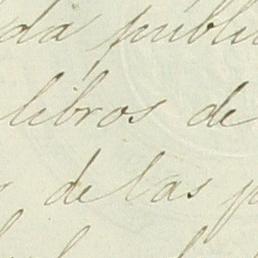 da públi
libros de
de las p